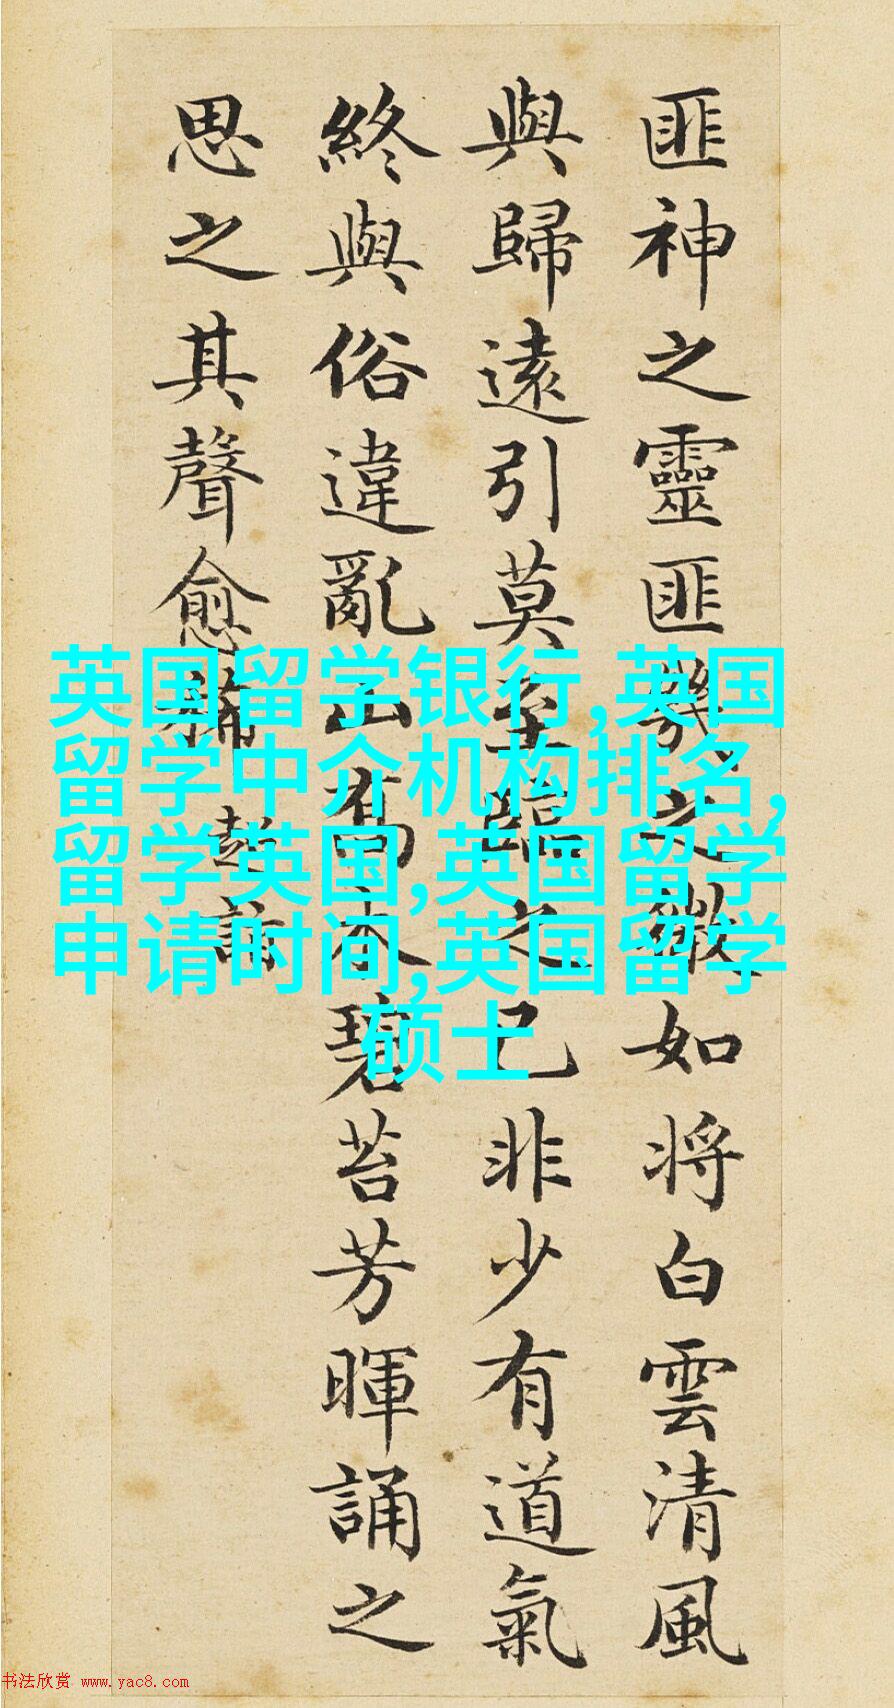 匪神之靈匪幾之微如將白雲清風
與歸遠引莫至臨之已非少有道氣
終與俗違亂山喬木碧苔芳暉誦之
思之其聲愈稀 超詣
英国留学银行,英国
留学中介机构排名,
留学英国,英国留学
申请时间,英国留学
硕士
书法欣赏 www.yac8.com